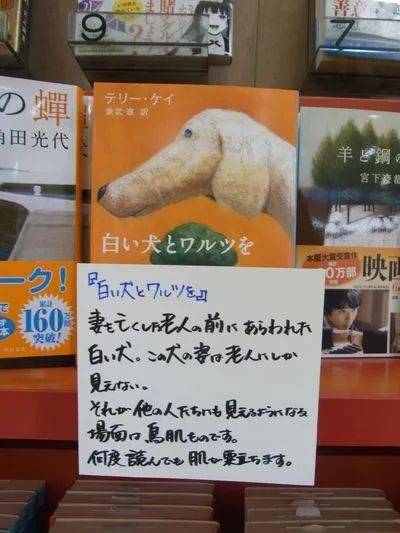 9
7
の蟬
角田光代
ーク！
累計
160万部
突破！
テリー・ケイ
兼武進 訳
白い犬とワルツを
羊と鋼の
宮下奈都
本屋大賞受賞作
0万部
映画
『白い犬とワルツを』
妻を亡くした老人の前にあらわれた
白い犬。この犬の姿は老人にしか
見えない。
それが他の人たちにも見えるようになる
場面は鳥肌ものです。
何度読んでも肌が粟立ちます。